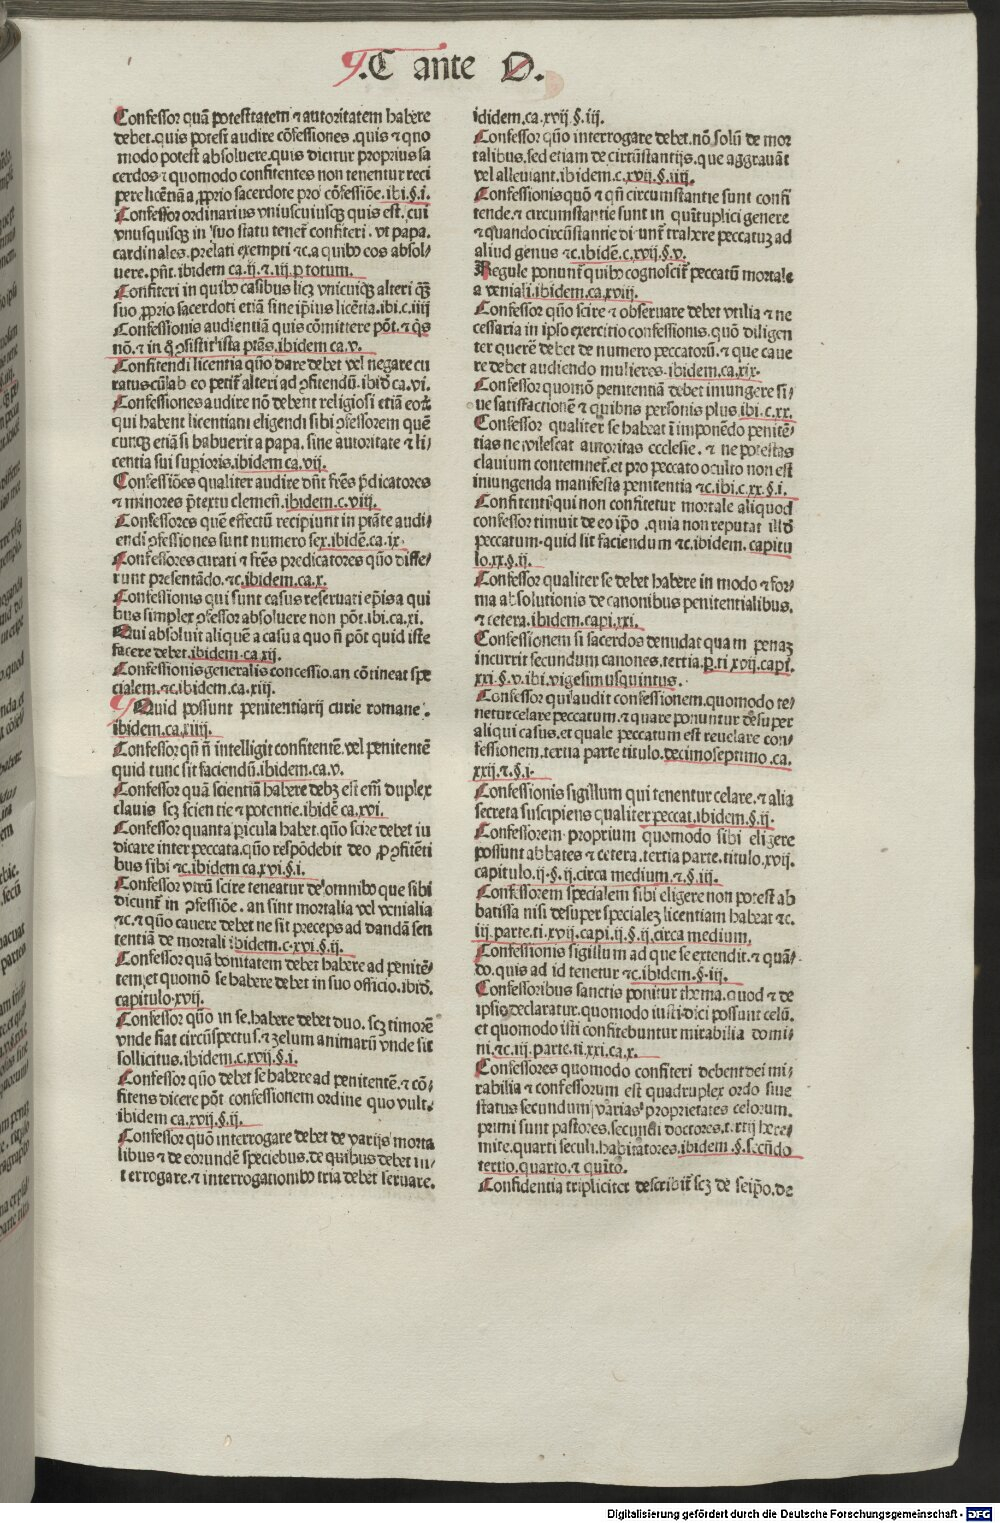 .C ante O.
Confessor quã potestatem ⁊ autoritatem habere
debet.quis potest audire cõfessiones .quis ⁊ quo
modo potest absoluere.quis dicitur proprius sa
cerdos ⁊ quomodo confitentes non tenentur reci
pere licẽtiã a ꝓprio sacerdote pro cõfessiõe.ibi.§.i.
Confessor ordinarius vniuscuiusqꝫ quis est. cui
vnusquisqꝫ in suo statu tenet᷑ confiteri. vt papa.
cardinales.prelati exempti ⁊c.a quibꝰ eos absol/
uere.pñt.ibidem ca.ij.⁊.iij.ꝑ totum.
Confiteri in quibꝰ casibus licꝫ vnicuiqꝫ alteri qꝫ̃
suo ꝓprio sacerdoti etiã sine ip̃ius licẽtia.ibi.c.iiij
Confessionis audientiã quis cõmittere põt.⁊ q̃s
nõ.⁊ in q̃ ꝯsistit ista p̃tãs.ibidem ca.v.
Confitendi licentia quõ dare debet vel negare cu
ratus cũ ab eo petit᷑ alteri ad ꝯfitendũ.ibid̃ ca.vi.
Confessiones audire nõ debent religiosi etiã eoꝝ
qui habent licentiam eligendi sibi ꝯfessorem quẽ
cunqꝫ etiã si habuerit a papa. sine autoritate ⁊ li/
centia sui supioris.ibidem ca.vij.
Confessiões qualiter audire dñt fr̃es p̃dicatores
⁊ minores p̃textu clemeñ.ibidem.c.viij.
Confessores quẽ effectũ recipiunt in p̃tãte audi/
endi ꝯfessiones sunt numero sex.ibidẽ.ca.ix.
Confessores curati ⁊ fr̃es predicatores quõ diffe/
runt presentãdo.⁊c.ibidem.ca.x.
Confessionis qui sunt casus reseruati ep̃is a qui
bus simplex ꝯfessor absoluere non põt.ibi.ca.xi.
Qui absoluit aliquẽ a casu a quo ñ põt quid iste
facere debet.ibidem.ca.xij.
Confessionis generalis concessio.an cõtineat spe
cialem.⁊c.ibidem.ca.xiij.
Quid possunt penitentiarij curie romane.
ibidem.ca.xiiij.
Confessor qñ ñ intelligit confitentẽ.vel penitentẽ
quid tunc sit faciendũ.ibidem.ca.v.
Confessor quã scientiã habere debꝫ est em̃ duplex
clauis scꝫ scientie ⁊ potentie.ibidẽ ca.xvi.
Confessor quanta ꝑicula habet.quõ scire debet iu
dicare inter peccata.quõ respõdebit deo ꝓ ꝯfitẽti
bus sibi ⁊c.ibidem ca.xvi.§.i.
Confessor vtrũ scire teneatur de omnibꝰ que sibi
dicunt᷑ in ꝯfessiõe. an sint mortalia vel venialia
⁊c.⁊ quõ cauere debet ne sit preceps ad dandã sen
tentiã de mortali ibidem.c.xvi.§.ij.
Confessor quã bonitatem debet habere ad penitẽ/
tem.et quomõ se habere debet in suo officio.ibid̃.
capitulo.xvij.
Confessor quõ in se.habere debet duo. scꝫ timorẽ
vnde fiat circũspectus.⁊ zelum animarũ vnde sit
sollicitus.ibidem.c.xvij.§.i.
Confessor quõ debet se habere ad penitentẽ.⁊ cõ/
fitens dicere põt confessionem ordine quo vult.
ibidem ca.xvij.§.ij.
Confessor quõ interrogare debet de varijs morta
libus ⁊ de eorundẽ speciebus.de quibus debet in/
terrogare.⁊ interrogationibꝰ tria debet seruare.
ididem.ca.xvij.§.iij.
Confessor quõ interrogare debet.nõ solũ de mor
talibus.sed etiam de circũstantijs.que aggrauãt
vel alleuiant.ibidem.c.xvij.§.iiij.
Confessionis quõ ⁊ qñ circumstantie sunt confi
tende.⁊ circumstantie sunt in quĩtuplici genere
⁊ quando circũstantie dicunt᷑ trahere peccatuꝫ ad
aliud genus ⁊c.ibidẽ.c.xvij.§.v.
Regule ponunt᷑ quibꝰ cognoscit᷑ peccatũ mortale
a veniali.ibidem.ca.xviij.
Confessor quõ scire ⁊ obseruare debet vtilia ⁊ ne
cessaria in ipso exercitio confessionis.quõ diligen
ter querẽ debet de numero peccatorũ.⁊ que caue
re debet audiendo mulieres.ibidem.ca.xix.
Confessor quomõ penitentiã debet iniungere si/
ue satisfactionẽ ⁊ quibus personis plus.ibi.c.xx.
Confessor qualiter se habeat ĩ imponẽdo penitẽ/
tias ne vilescat autoritas ecclesie.⁊ ne potestas
clauium contemnet᷑.et pro peccato oculto non est
iniungenda manifesta penitentia ⁊c.ibi.c.xx.§.i.
Confitenti.qui non confitetur mortale aliquod
confessor timuit de eo ip̃o .quia non reputat illd̃
peccatum.quid sit faciendum ⁊c.ibidem. capitu
lo.xx.§.ij.
Confessor qualiter se debet habere in modo ⁊ for/
ma absolutionis de canonibus penitentialibus.
⁊ cetera.ibidem.capi.xxi.
Confessionem si sacerdos denudat quam penaꝫ
incurrit secundum canones.tertia.p.ti xvij.capi.
xxi.§.v.ibi.vigesimusquintus.
Confessor qui audit confessionem.quomodo te/
netur celare peccatum.⁊ quare ponuntur desuper
aliqui casus.et quale peccatum est reuelare con/
fessionem.tertia parte titulo.decimoseptimo.ca.
xxij.⁊.§.i.
Confessionis sigillum qui tenentur celare.⁊ alia
secreta suscipiens qualiter peccat.ibidem.§.ij.
Confessorem proprium quomodo sibi eligere
possunt abbates ⁊ cetera.tertia parte.titulo.xvij.
capitulo.ij.§.ij.circa medium.⁊.§.iij.
Confessorem specialem sibi eligere non potest ab
batissa nisi desuper specialeꝫ licentiam habeat ⁊c.
iij.parte.ti.xvij.capi.ij.§.ij.circa medium.
Confessionis sigillum ad que se extendit.⁊ quã/
do.quis ad id tenetur ⁊c.ibidem.§.iij.
Confessoribus sanctis ponitur thema.quod ⁊ de
ipsis declaratur.quomodo iusti dici possunt celũ.
et quomodo isti confitebuntur mirabilia domi/
ni.⁊c.iij.parte.ti.xxi.ca.x.
Confessores quomodo confiteri debent dei mi/
rabilia ⁊ confessorum est quadruplex ordo siue
status secundum varias proprietates celorum.
primi sunt pastores.secundi doctores.tertij here/
mite.quarti seculi.habitatores.ibidem.§.secũdo
tertio.quarto.⁊ quĩto.
Confidentia tripliciter describit᷑ scꝫ de seip̃o.de
Digitalisierung gefördert durch die Deutsche Forschungsgemeinschaft - DFG